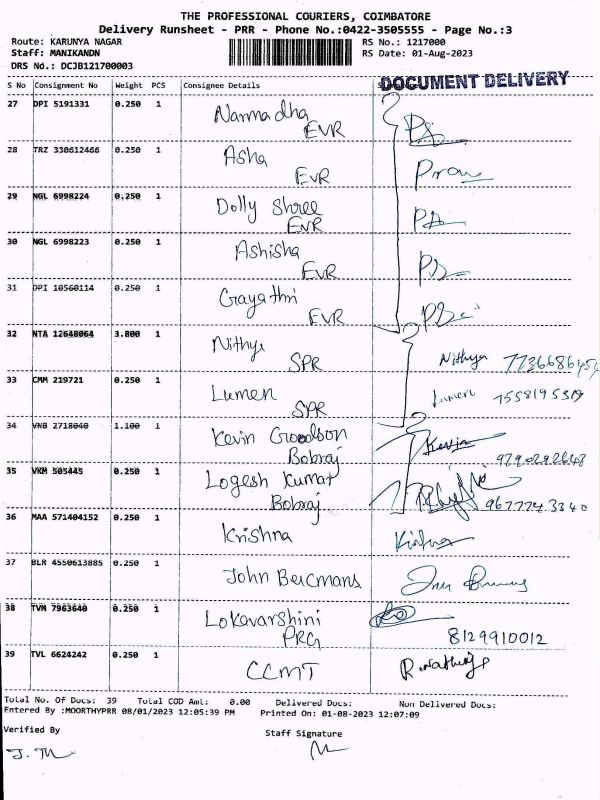 THE PROFESSIONAL COURIERS, COIMBATORE
Delivery Runsheet - PRR - Phone No.:0422-3505555 - Page No.:3
Route: KARUNYA NAGAR RS No.: 1217000
Staff: MANIKANDN RS Date: 01-Aug-2023
DRS No.: DCJB121700003
S No Consignment No Weight PCS Consignee Details DOCUMENT DELIVERY
27 DPI 5191331 0.250 1 Narmadha
EVR
28 TRZ 330612466 0.250 1 Asha
EVR
29 NGL 6998224 0.250 1 Dolly Shree
EVR
30 NGL 6998223 0.250 1 Ashisha
EVR
31 DPI 10560114 0.250 1 Gayathri
EVR
32 NTA 12648064 3.800 1 Nithya
SPR Nithya
33 CMM 219721 0.250 1 Lumen
SPR Lumen
34 VNB 2718040 1.100 1 Kevin Goodson
Bobraj Kevin
35 VKM 505445 0.250 1 Logesh Kumar
Bobraj
36 MAA 571404152 0.250 1 Krishna
37 BLR 4550613885 0.250 1 John Bercmans
38 TVM 7963640 0.250 1 Lokavarshini
PRG 8129910012
39 TVL 6624242 0.250 1 CCMT
Total No. Of Docs: 39 Total COD Amt: 0.00 Delivered Docs: Non Delivered Docs:
Entered By :MOORTHYPRR 08/01/2023 12:05:39 PM Printed On: 01-08-2023 12:07:09
Verified By Staff Signature